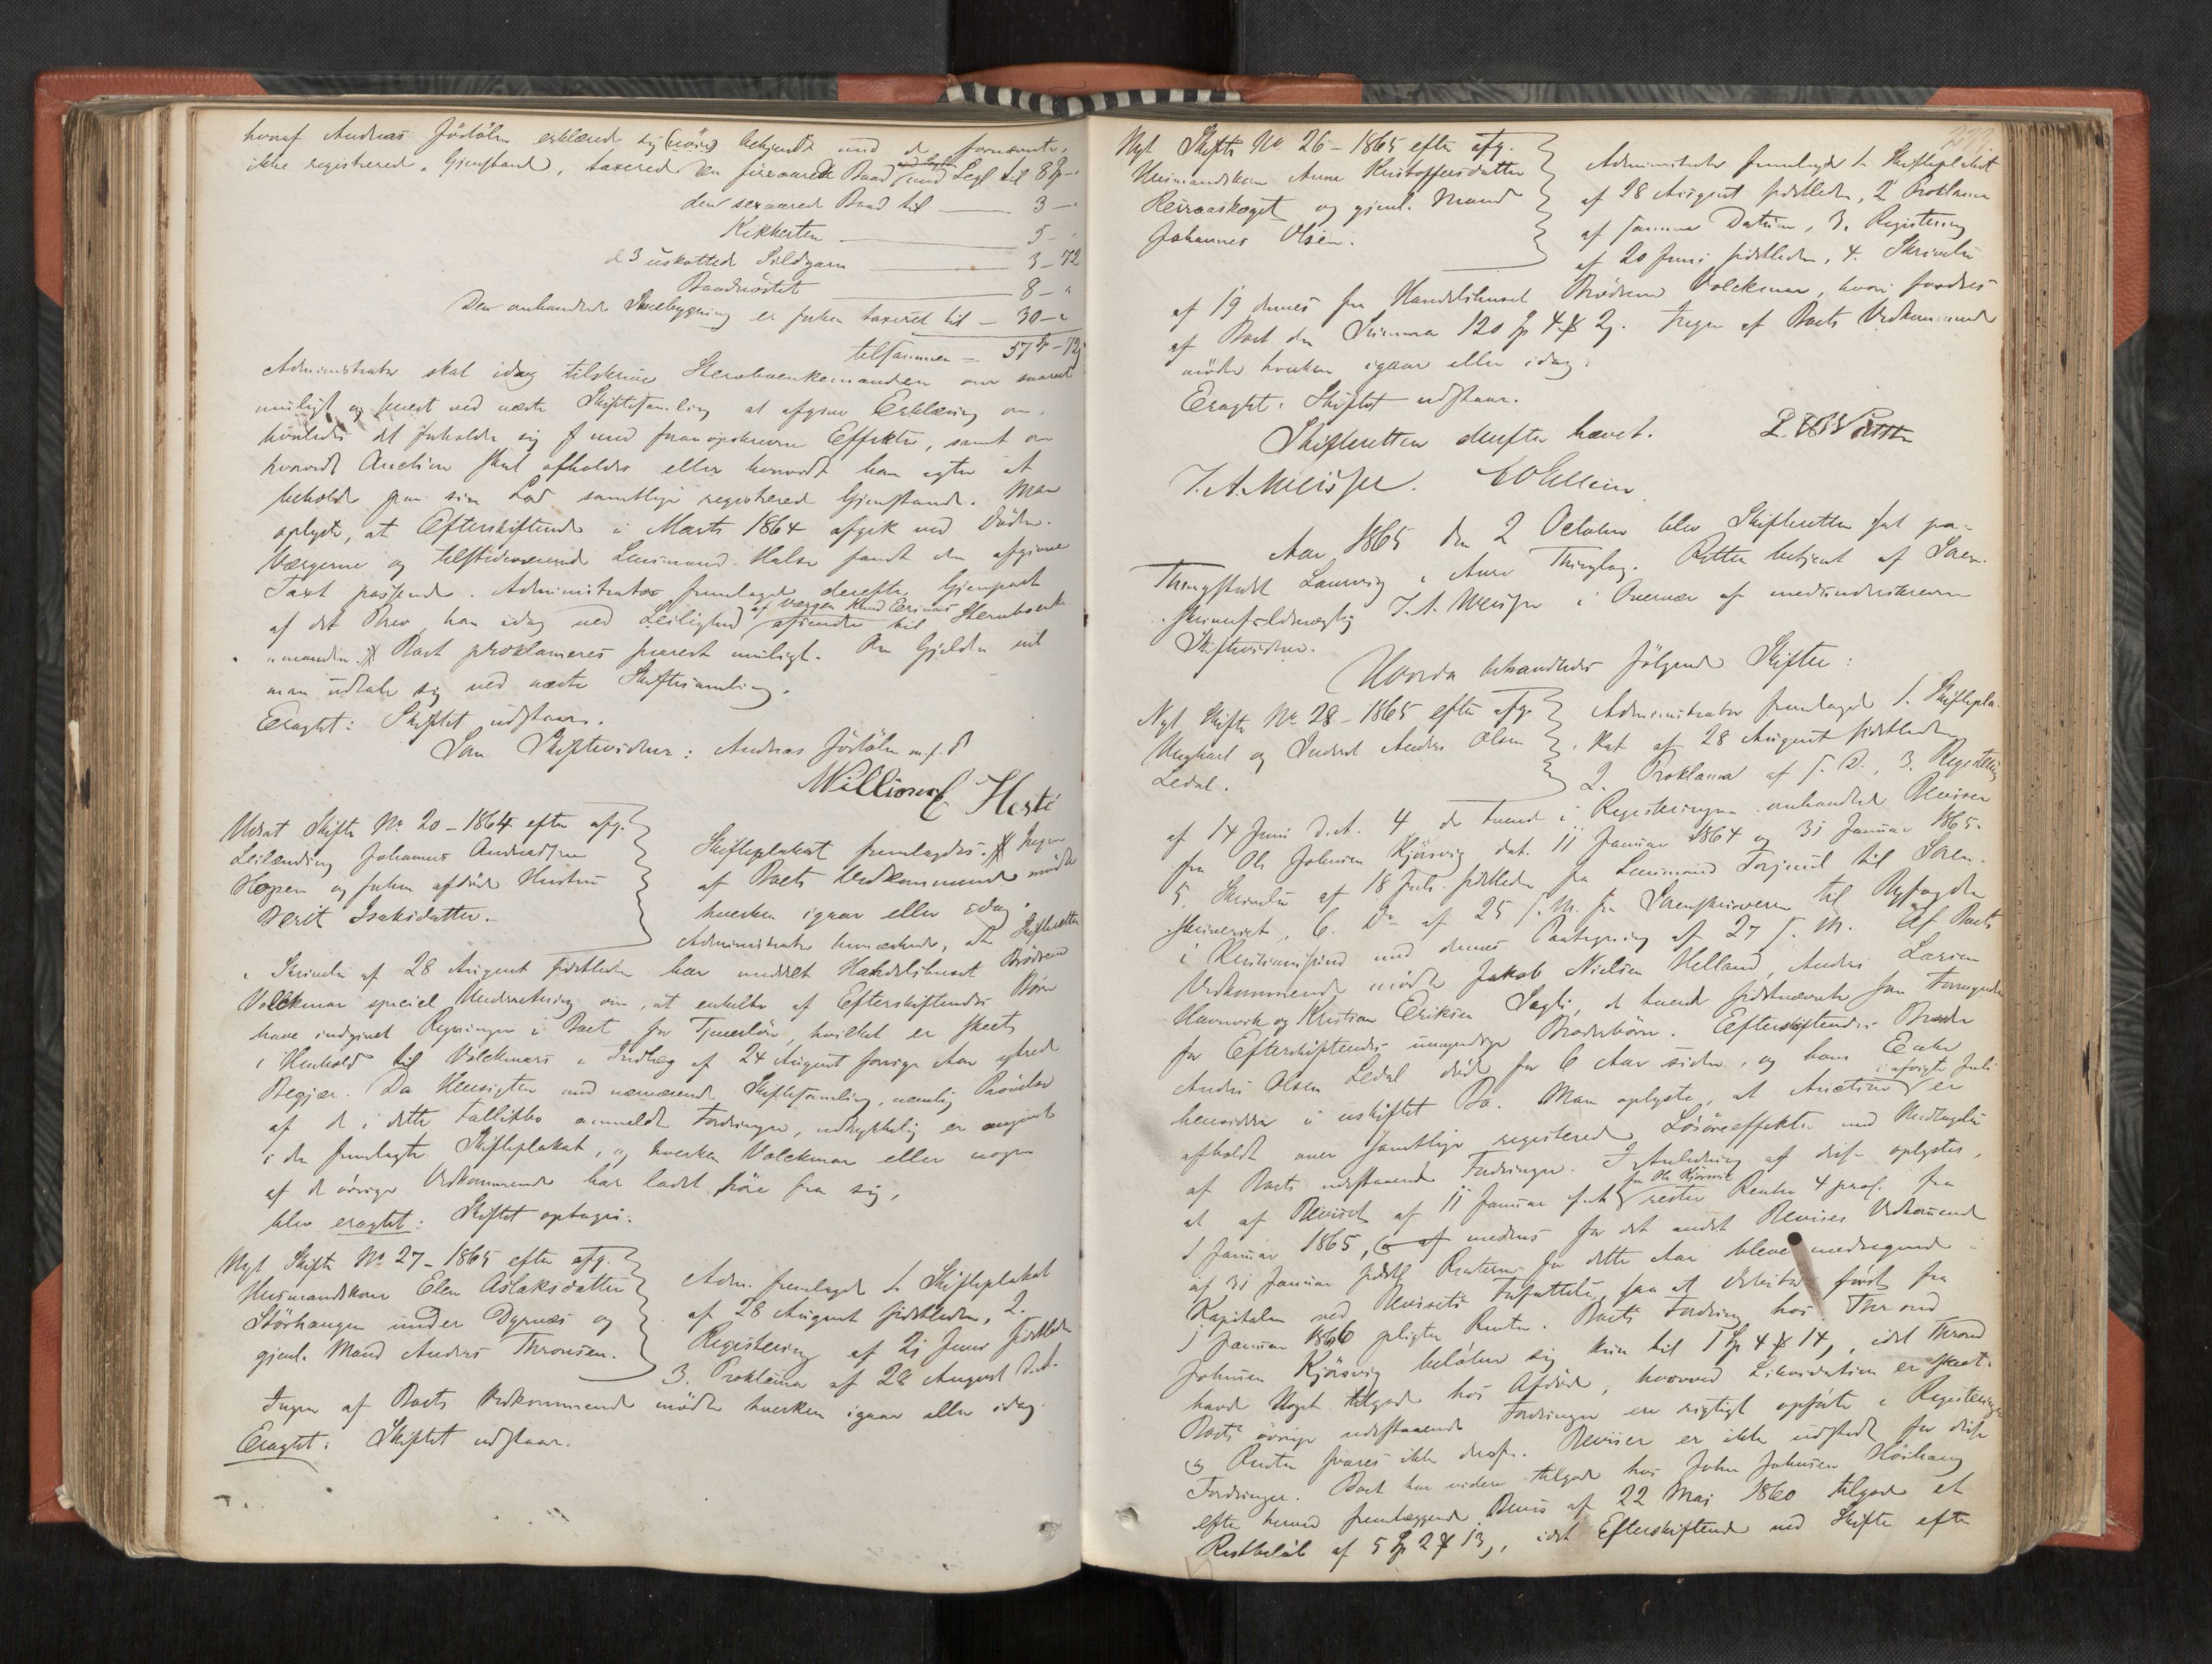 hvoraf Andreas Jöstölen erklærede sig (nöie) bekjendt med de fornævnte,
ikke registrerede Gjenstande, taxerede den fireaarede Baad med Segl til 8 Sp -
den sexaarede Baad til - 3 -
Kikkerten - 5 -
d 3 uskattede Sildgarn - 3 - 72
Baadnöstet - 8 - "
Den omhandlede Huusbygning er forhen taxeret til - 30 - "
tilsammen = 57 Sp - 72
Administrator skal idag tilskrive Stervboenkemanden om snarest
muligt og senest ved næste Skiftesamling at afgive Erklæring om,
hvorledes det forholder sig med foranopskrevne Effekter, samt om
hvorvidt Auction skal afholdes eller hvorvidt han agter at
beholde paa sin Lod samtlige registrerede Gjenstande. Man
oplyste, at Efterskiftende i Marts 1864 afgik ved Döden.
Værgerne og tilstedeværende Lensmand Halse fandt den afgivne
Taxt passende. Administrator fremlagde derefter Gjenpart
af det Brev han idag ved Leilighed af Værgen Knud afsender til Stervboenke
manden. Boet proklameres snarest muligt. Om Gjelden vil
man udtale sig ved næste Skiftesamling.
Eragtet: Skiftet udstaar.
Som Skiftevidner: Andreas Jöstölen m. f. P
William Heste
Udsat Skifte No 20 - 1864 efter afg.
Leilænding Johannes Andreassen
Hopen og forhen afdöde Hustru
Berit Isaksdatter.
Skifteplakat fremlagdes. Ingen
af Boets Vedkommende mödte
hverken igaar eller idag.
Administrator bemærkede, at Skifteretten
i Skrivelse af 28 August sidstleden har meddelt Handelshuset Brödrene
Volckmar speciel Underretning om, at enkelte af Efterskiftendes Börn
have indgivet Regninger i Boet for Tjenerlön, hvilket er skeet
i Henhold til Volckmars i Indlæg af 24 August forrige Aar yttrede
Begjær. Da Hensigten med nærværende Skiftesamling, nemlig Prövelse
af de i dette Fallitbo anmeldte Fordringer, udtrykkelig er angivet
i den fremlagte Skifteplakat, og hverken Volckmar eller nogen
af de övrige Vedkommende har ladet höre fra sig,
blev eragtet: Skiftet optages.
Nyt Skifte No 27 - 1865 efter afg.
Husmandskone Elen Aslaksdatter
Störhaugen under Dyrnæs og
gjenl. Mand Anders Thronsen.
Adm. fremlagde 1. Skifteplakat
af 28 August sidstleden, 2.
Registrering af 21 Juni sidstleden
3. Proklama af 28 August d. A.
Ingen af Boets Vedkommende mödte hverken igaar eller idag.
Eragtet: Skiftet udstaar.
Nyt Skifte No 26 - 1865 efter afg.
Husmandskone Anne Kristoffersdatter
Reiraaskaget og gjenl. Mand
Johannes Olsen.
Administrator fremlagde 1. Skifteplakat
af 28 August sidstleden, 2 Proklama
af samme Datum, 3. Registrering
af 20 Juni sidstleden, 4. Skrivelse
af 19 dennes fra Handelshuset Brödrene Volckmar, hvori fordres
af Boet den Summa 120 Sp 4 # 2 s. Ingen af Boets Vedkommende
mödte hverken igaar eller idag.
Eragtet: Skiftet udstaar.
Skifteretten derefter hævet.
J. A. Meisser.
Aar 1865 den 2 October blev Skifteretten sat paa
Thingstedet Laurvig i Aure Thinglag. Retten betjent af Soren-
skriverfuldmægtig J. A. Meisser i Overvær af medunderskrevne
Skiftevidner.
Hvorda behandledes fölgende Skifter:
Nyt Skifte No 28 - 1865 efter afg.
Ungkarl og Inderst Anders Olsen
Ledal.
Administrator fremlagde 1. Skiftepla-
kat af 28 August sidstleden
2. Proklama af s. D., 3. Registrering
af 14 Juni d. A. 4 de tvende i Registreringen omhandlede Beviser
fra Ole Johnsen Kjörsvig dat. 11 Januar 1864 og 31 Januar 1865.
5. Skrivelse af 18 Juli sidstleden fra Lensmand Forjund til Soren-
skriveriet, 6. Do af 25 s. M. fra Sorenskriveren til Byfogden
i Kristiansund med dennes Paategning af 27 s. M. Af Boets
Vedkommende mödte Jakob Nielsen Helland, Anders Larsen
Havnvik og Kristian Eriksen Sagli, de tvende sidstnævnte som Formyndere
for Efterskiftendes umyndige Broderbörn. Efterskiftendes Broder
Anders Olsen Ledal döde for 6 Aar siden, og hans Enke
hensidder i uskiftet Bo. Man oplyste, at Auction i afvigte Juli er
afholdt over samtlige registrerede Lösöreeffekter med Undtagelse
af Boets udestaaende Fordringer. I Anledning af disse oplystes,
at af Beviset af 11 Januar f. A. fra Ole Kjörsvik rester Renter 4 proc. fra
1 Januar 1865, medens for det andet Bevises Vedkommende
af 31 Januar sidstl. Renterne for dette Aar bleve medregnede i
Kapitalen ved Bevisets Forfattelse, saa at Debitor först fra
1 Januar 1866 pligter Renter. Boets Fordring hos Thrond
Johnsen Kjörsvig belöber sig kun til 1 Sp 4 # 14, idet Thrond
havde Noget tilgode hos Afdöde, hvorved Likvidation er skeet.
Boets övrige udestaaende Fordringer ere rigtigt opförte i Registreringen
og Renter svares ikke deraf. Beviser er ikke udstedt for disse
Fordringer. Boet har videre tilgode hos John Johnsen Höihaug
efter herved fremlæggende Bevis af 22 Mai 1860 tilgode et
Restbelöb af 5 Sp 2 # 13, idet Efterskiftende ved Skifte efter